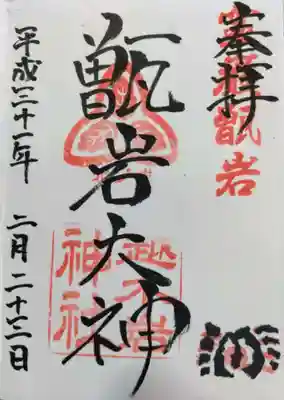 奉拝
甑岩
甑岩大神
越木岩
神社
平成三十一年 二月二十三日